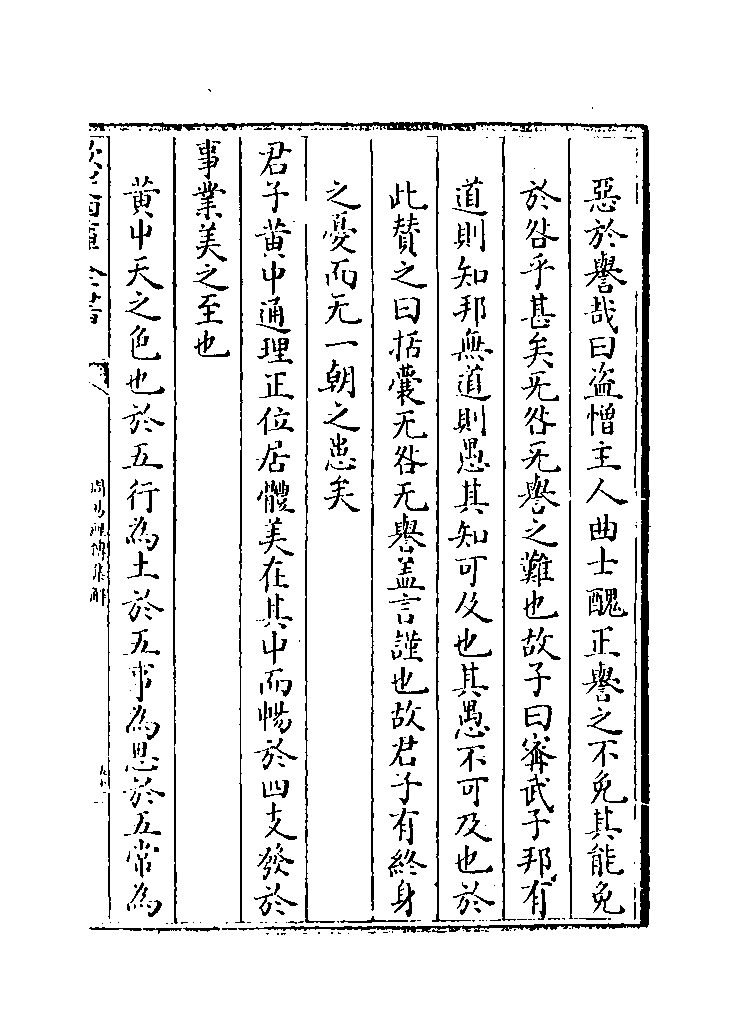 惡於譽哉曰盗憎主人曲士醜正譽之不免其能免
於咎乎甚矣无咎无譽之難也故子曰寗武子邦有
道則知邦無道則愚其知可及也其愚不可及也於
此賛之曰括囊无咎无譽盖言謹也故君子有終身
之憂而无一朝之患矣
君子黄中通理正位居體美在其中而暢於四支發於
事業美之至也
黄中天之色也於五行為土於五事為思於五常為